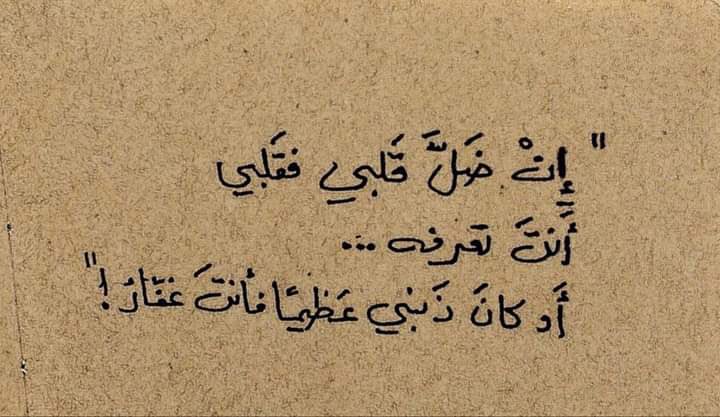 "إِنْ ضَلَّ قَلبي فقَلبي
أَنتَ تعرفه ...
أَو كانَ ذَنبي عَظيمًا فأنتَ غفّارُ!"